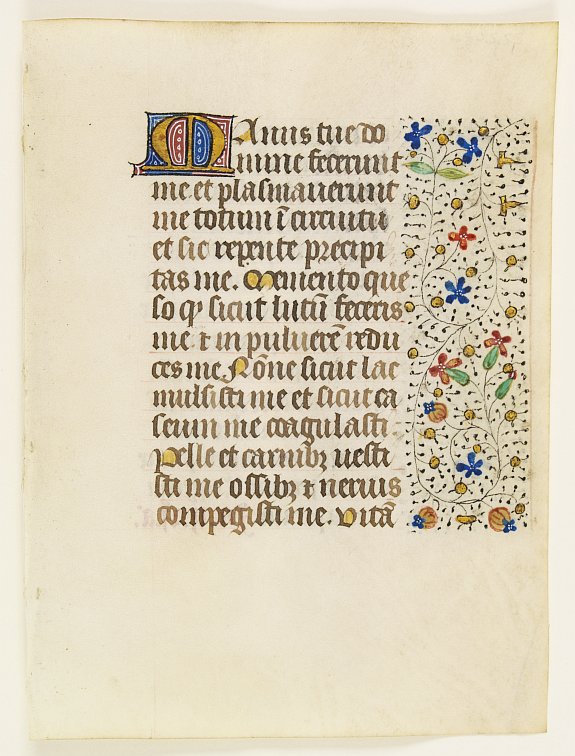 Manus tue do
mine fecerunt
me et plasmauerunt
me totum ī circuitu
et sic repente precipi
tas me. Memento que
so qꝫ sicut lutū feceris
me ⁊ in puluerē redu
ces me Nōne sicut lac
mulsisti me et sicut ca
seum me coagulasti.
Pelle et carnibꝫ uesti
sti me ossibꝫ ⁊ neruis
compegisti me. Vitā